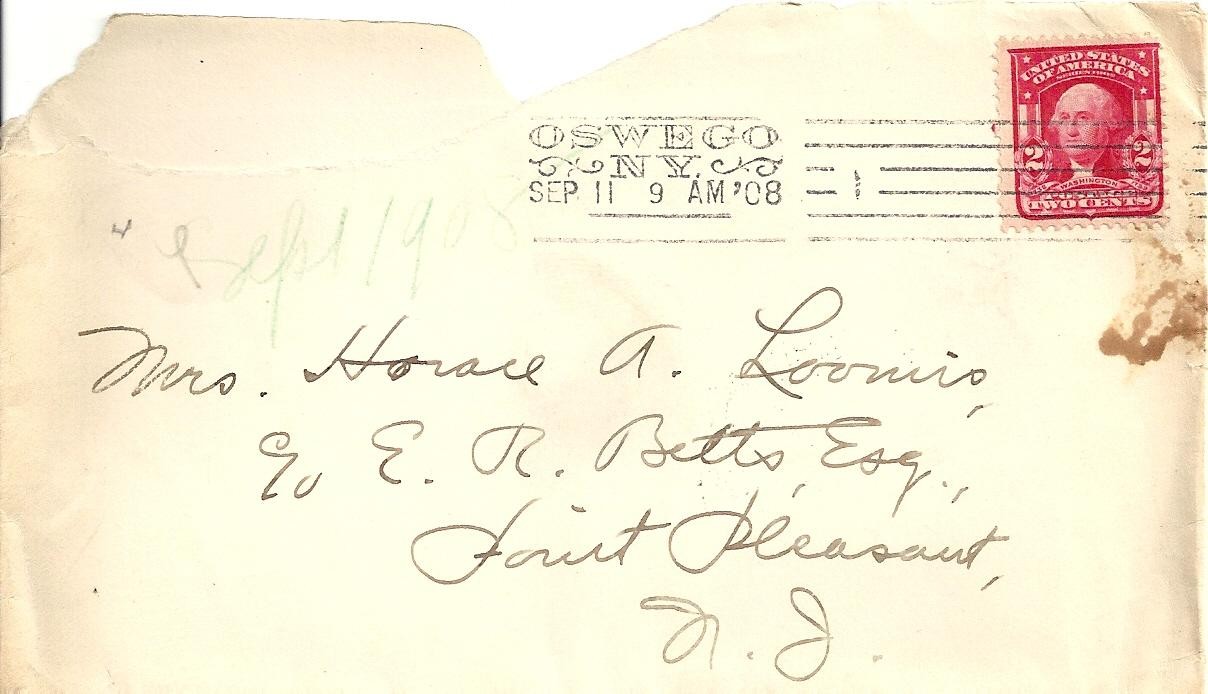 OSWEGO
N.Y.
SEP 11 9 AM '08
1
UNITED STATES
OF AMERICA
SERIES 1902
2 2
WASHINGTON
TWO CENTS
Sept 1908
Mrs. Horace A. Loomis,
c/o E. R. Betts, Esq.,
Point Pleasant,
N. J.